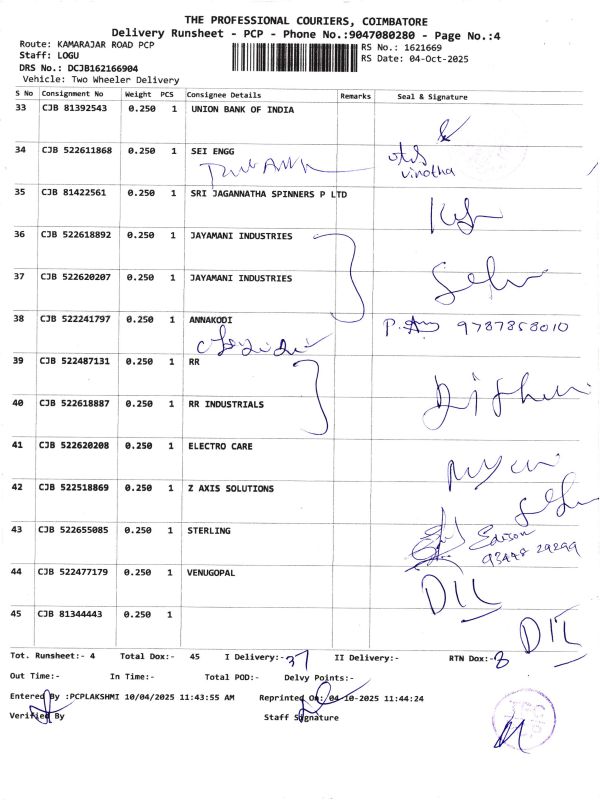 THE PROFESSIONAL COURIERS, COIMBATORE
Delivery Runsheet - PCP - Phone No.:9047080280 - Page No.:4
Route: KAMARAJAR ROAD PCP
RS No.: 1621669
Staff: LOGU
RS Date: 04-Oct-2025
DRS No.: DCJB162166904
Vehicle: Two Wheeler Delivery
S No Consignment No Weight PCS Consignee Details Remarks Seal & Signature
33 CJB 81392543 0.250 1 UNION BANK OF INDIA
34 CJB 522611868 0.250 1 SEI ENGG
vinotha
35 CJB 81422561 0.250 1 SRI JAGANNATHA SPINNERS P LTD
36 CJB 522618892 0.250 1 JAYAMANI INDUSTRIES
37 CJB 522620207 0.250 1 JAYAMANI INDUSTRIES
38 CJB 522241797 0.250 1 ANNAKODI
9787858010
39 CJB 522487131 0.250 1 RR
40 CJB 522618887 0.250 1 RR INDUSTRIALS
41 CJB 522620208 0.250 1 ELECTRO CARE
42 CJB 522518869 0.250 1 Z AXIS SOLUTIONS
43 CJB 522655085 0.250 1 STERLING
Edison
93448 29299
44 CJB 522477179 0.250 1 VENUGOPAL
45 CJB 81344443 0.250 1
Tot. Runsheet:- 4 Total Dox:- 45 I Delivery:- 37 II Delivery:- RTN Dox:- 8
Out Time:- In Time:- Total POD:- Delvy Points:-
Entered By :PCPLAKSHMI 10/04/2025 11:43:55 AM Reprinted On: 04-10-2025 11:44:24
Verified By Staff Signature